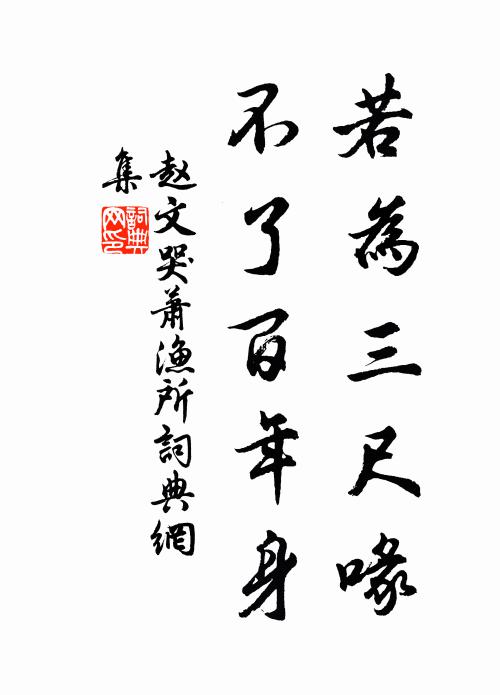 若為三尺喙
不了百年身
赵文哭蕭漁所詞典網
集
詞典網印